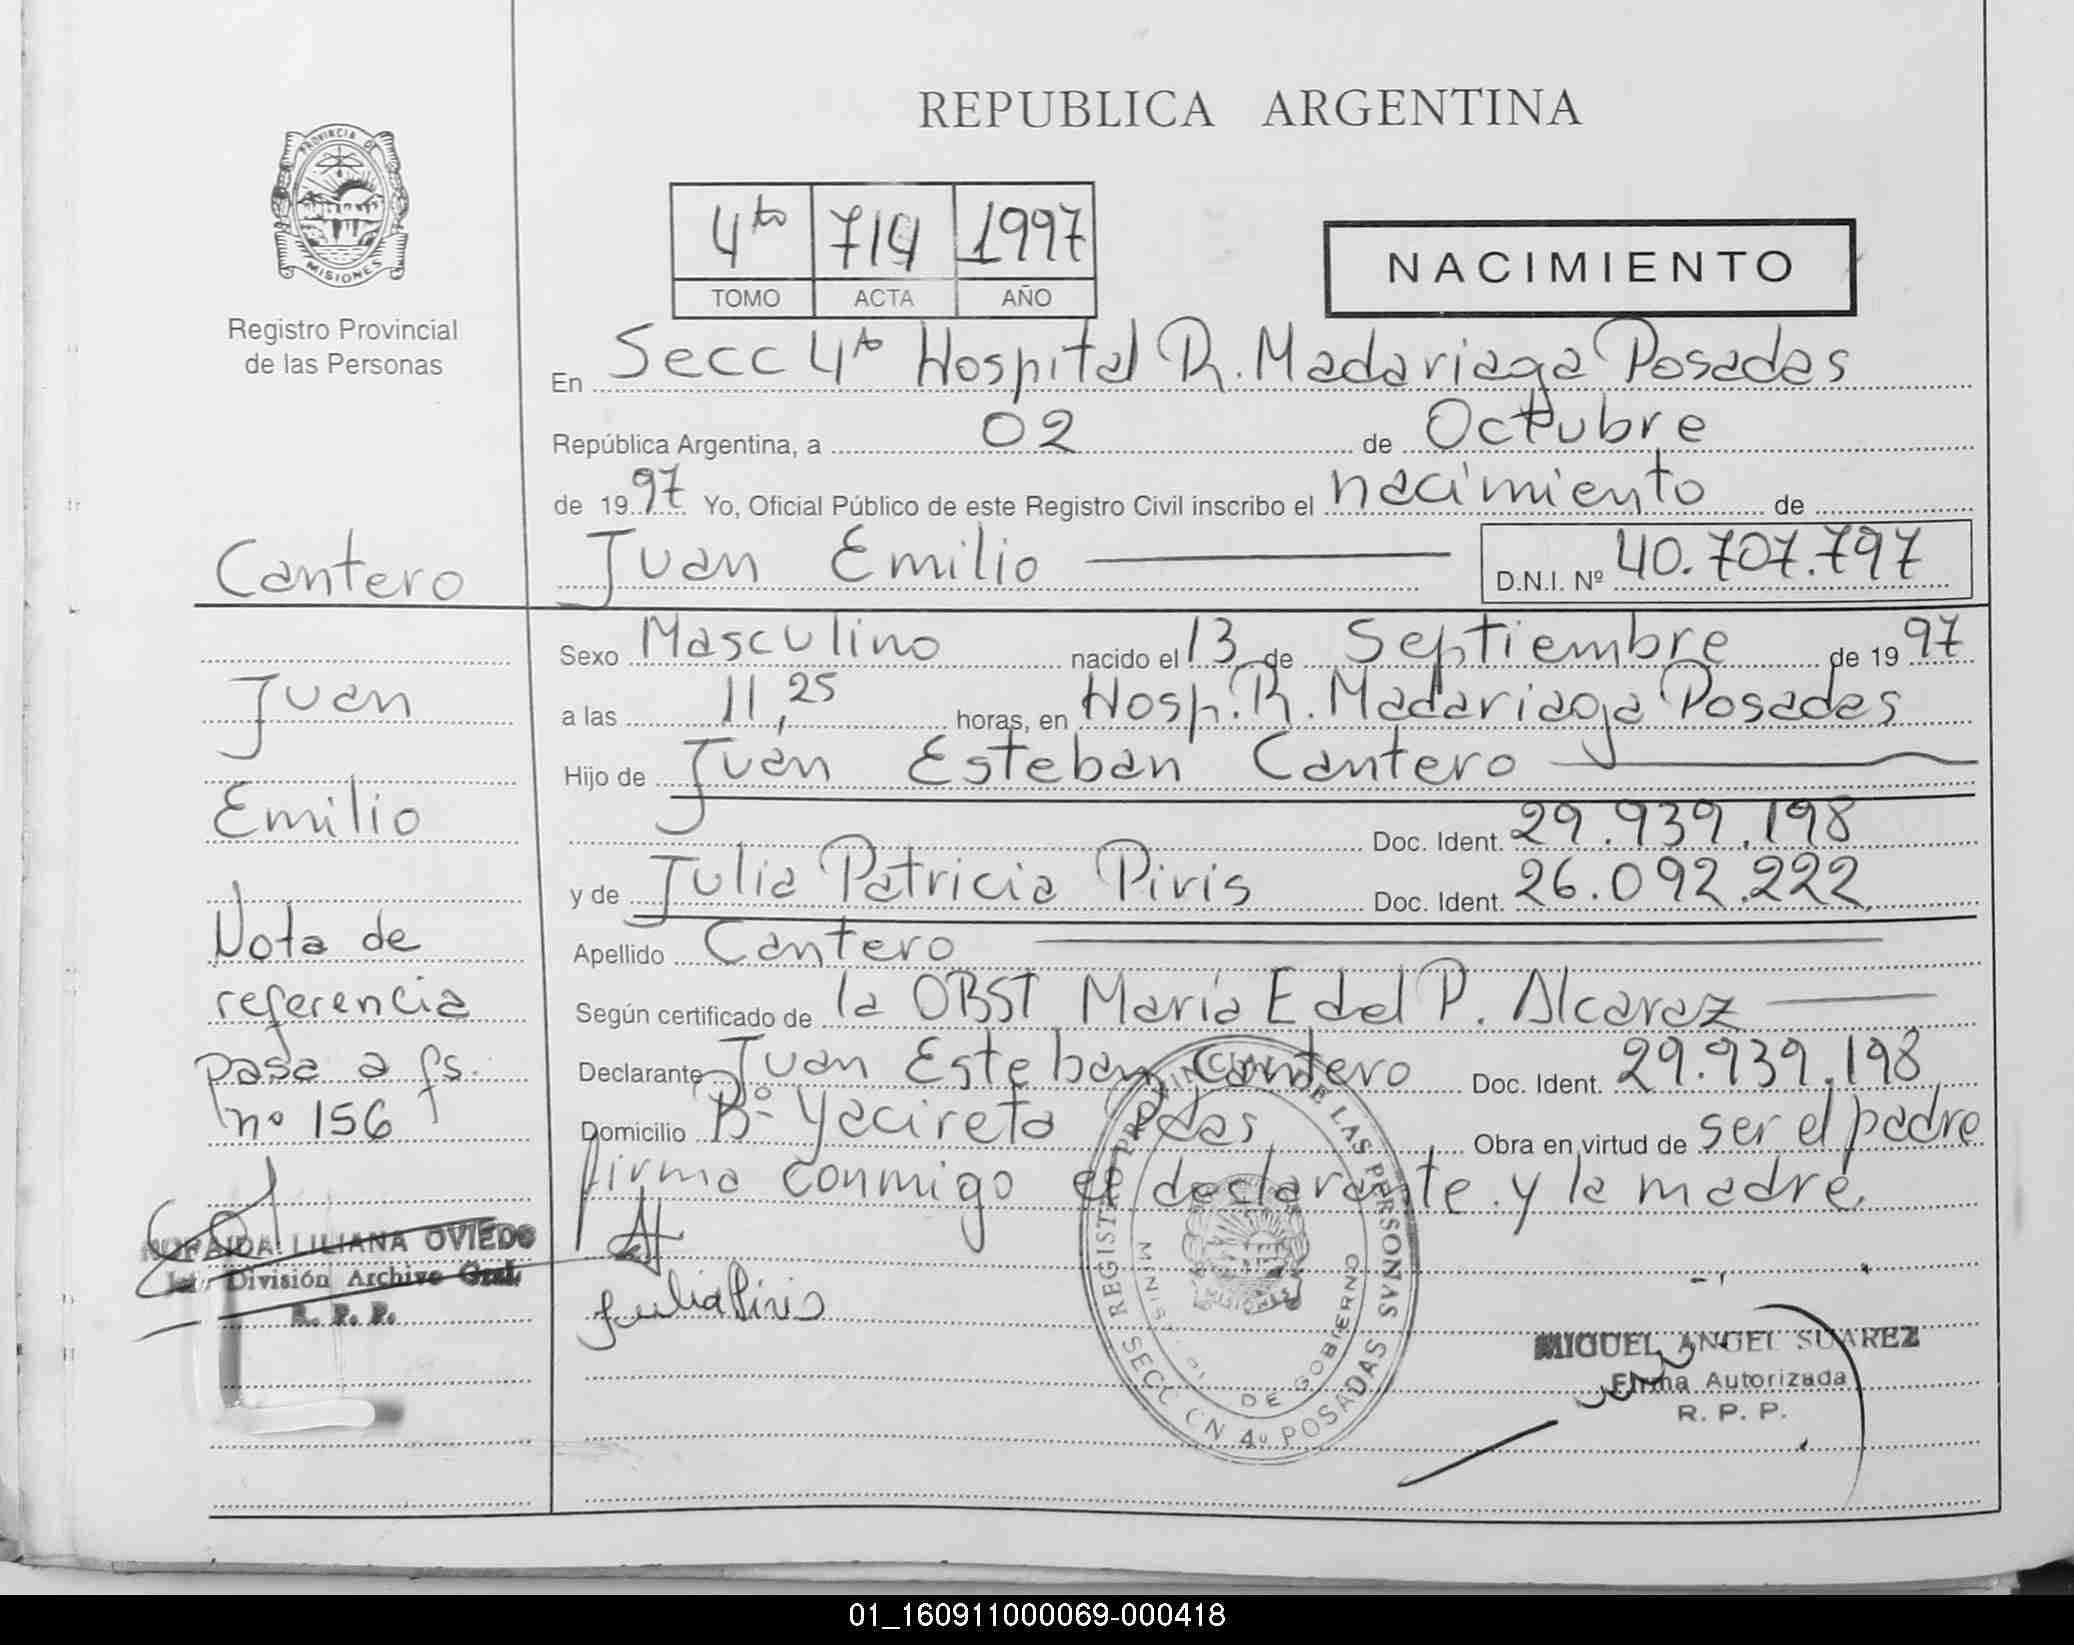 REPUBLICA ARGENTINA
PROVINCIA DE
MISIONES
Registro Provincial
de las Personas
4to 714 1997
TOMO ACTA AÑO
NACIMIENTO
En Secc 4to Hospital R. Madariaga Posadas
República Argentina, a 02 de Octubre
de 1997 Yo, Oficial Público de este Registro Civil inscribo el nacimiento de
Juan Emilio D.N.I. Nº 40.707.797
Sexo Masculino nacido el 13 de Septiembre de 1997
a las 11,25 horas, en Hosp. R. Madariaga Posadas
Hijo de Juan Esteban Cantero
Doc. Ident. 29.939.198
y de Julia Patricia Piris Doc. Ident. 26.092.222
Apellido Cantero
Según certificado de la OBST María Edel P. Alcaraz
Declarante Juan Esteban Cantero Doc. Ident. 29.939.198
Domicilio Bº Yacireta Pdas Obra en virtud de ser el padre
firma conmigo el declarante y la madre.
Julia Piris
REGISTRO PROVINCIAL DE LAS PERSONAS
DE GOBIERNO
MISIONES
SECCION 4º POSADAS
MIGUEL ANGEL SUAREZ
Firma Autorizada
R. P. P.
Cantero
Juan
Emilio
Nota de
referencia
pasa a fs.
nº 156
LILIANA OVIEDO
División Archivo Gral.
R. P. P.
01_160911000069-000418